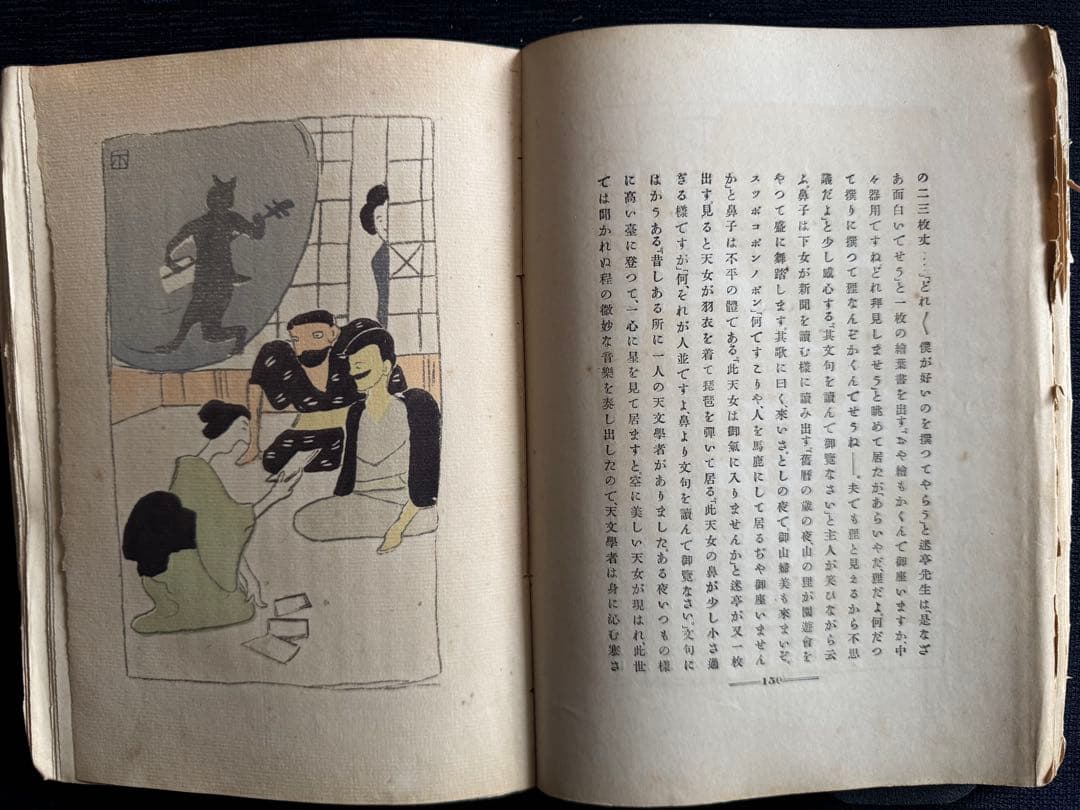 の二三枚丈…「どれ〱僕が好いのを撰つてやらう」と迷亭先生は、是なざ
あ面白いでせう」と一枚の繪葉書を出す。「おや繪もかくんで御座いますか、中
々器用ですねどれ拜見しませう」と眺めて居たが、「あらいやだ、狸だよ。何だつ
て撰りに撰つて狸なんぞかくんでせうね――。夫でも狸と見えるから不思
議だよ」と少し感心する。「其文句を讀んで御覽なさい」と主人が笑ひながら云
ふ、鼻子は下女が新聞を讀む樣に讀み出す。「舊曆の歳の夜、山の狸が園遊會を
やつて盛に舞踏します。其歌に曰く、來いさ、としの夜で、御山婦美も來まいぞ。
スツポコポンノポン」「何ですこりや、人を馬鹿にして居るぢや御座いません
か」と鼻子は不平の體である。「此天女は御氣に入りませんか」と迷亭が又一枚
出す。見ると天女が羽衣を着て琵琶を彈いて居る。「此天女の鼻が少し小さ過
ぎる樣ですが」「何、それが人並ですよ、鼻より文句を讀んで御覽なさい」文句に
はかうある。「昔しある所に一人の天文學者がありました。ある夜いつもの樣
に高い臺に登つて、一心に星を見て居ますと、空に美しい天女が現はれ、此世
では聞かれぬ程の微妙な音樂を奏し出したので、天文學者は身に沁む寒さ
150